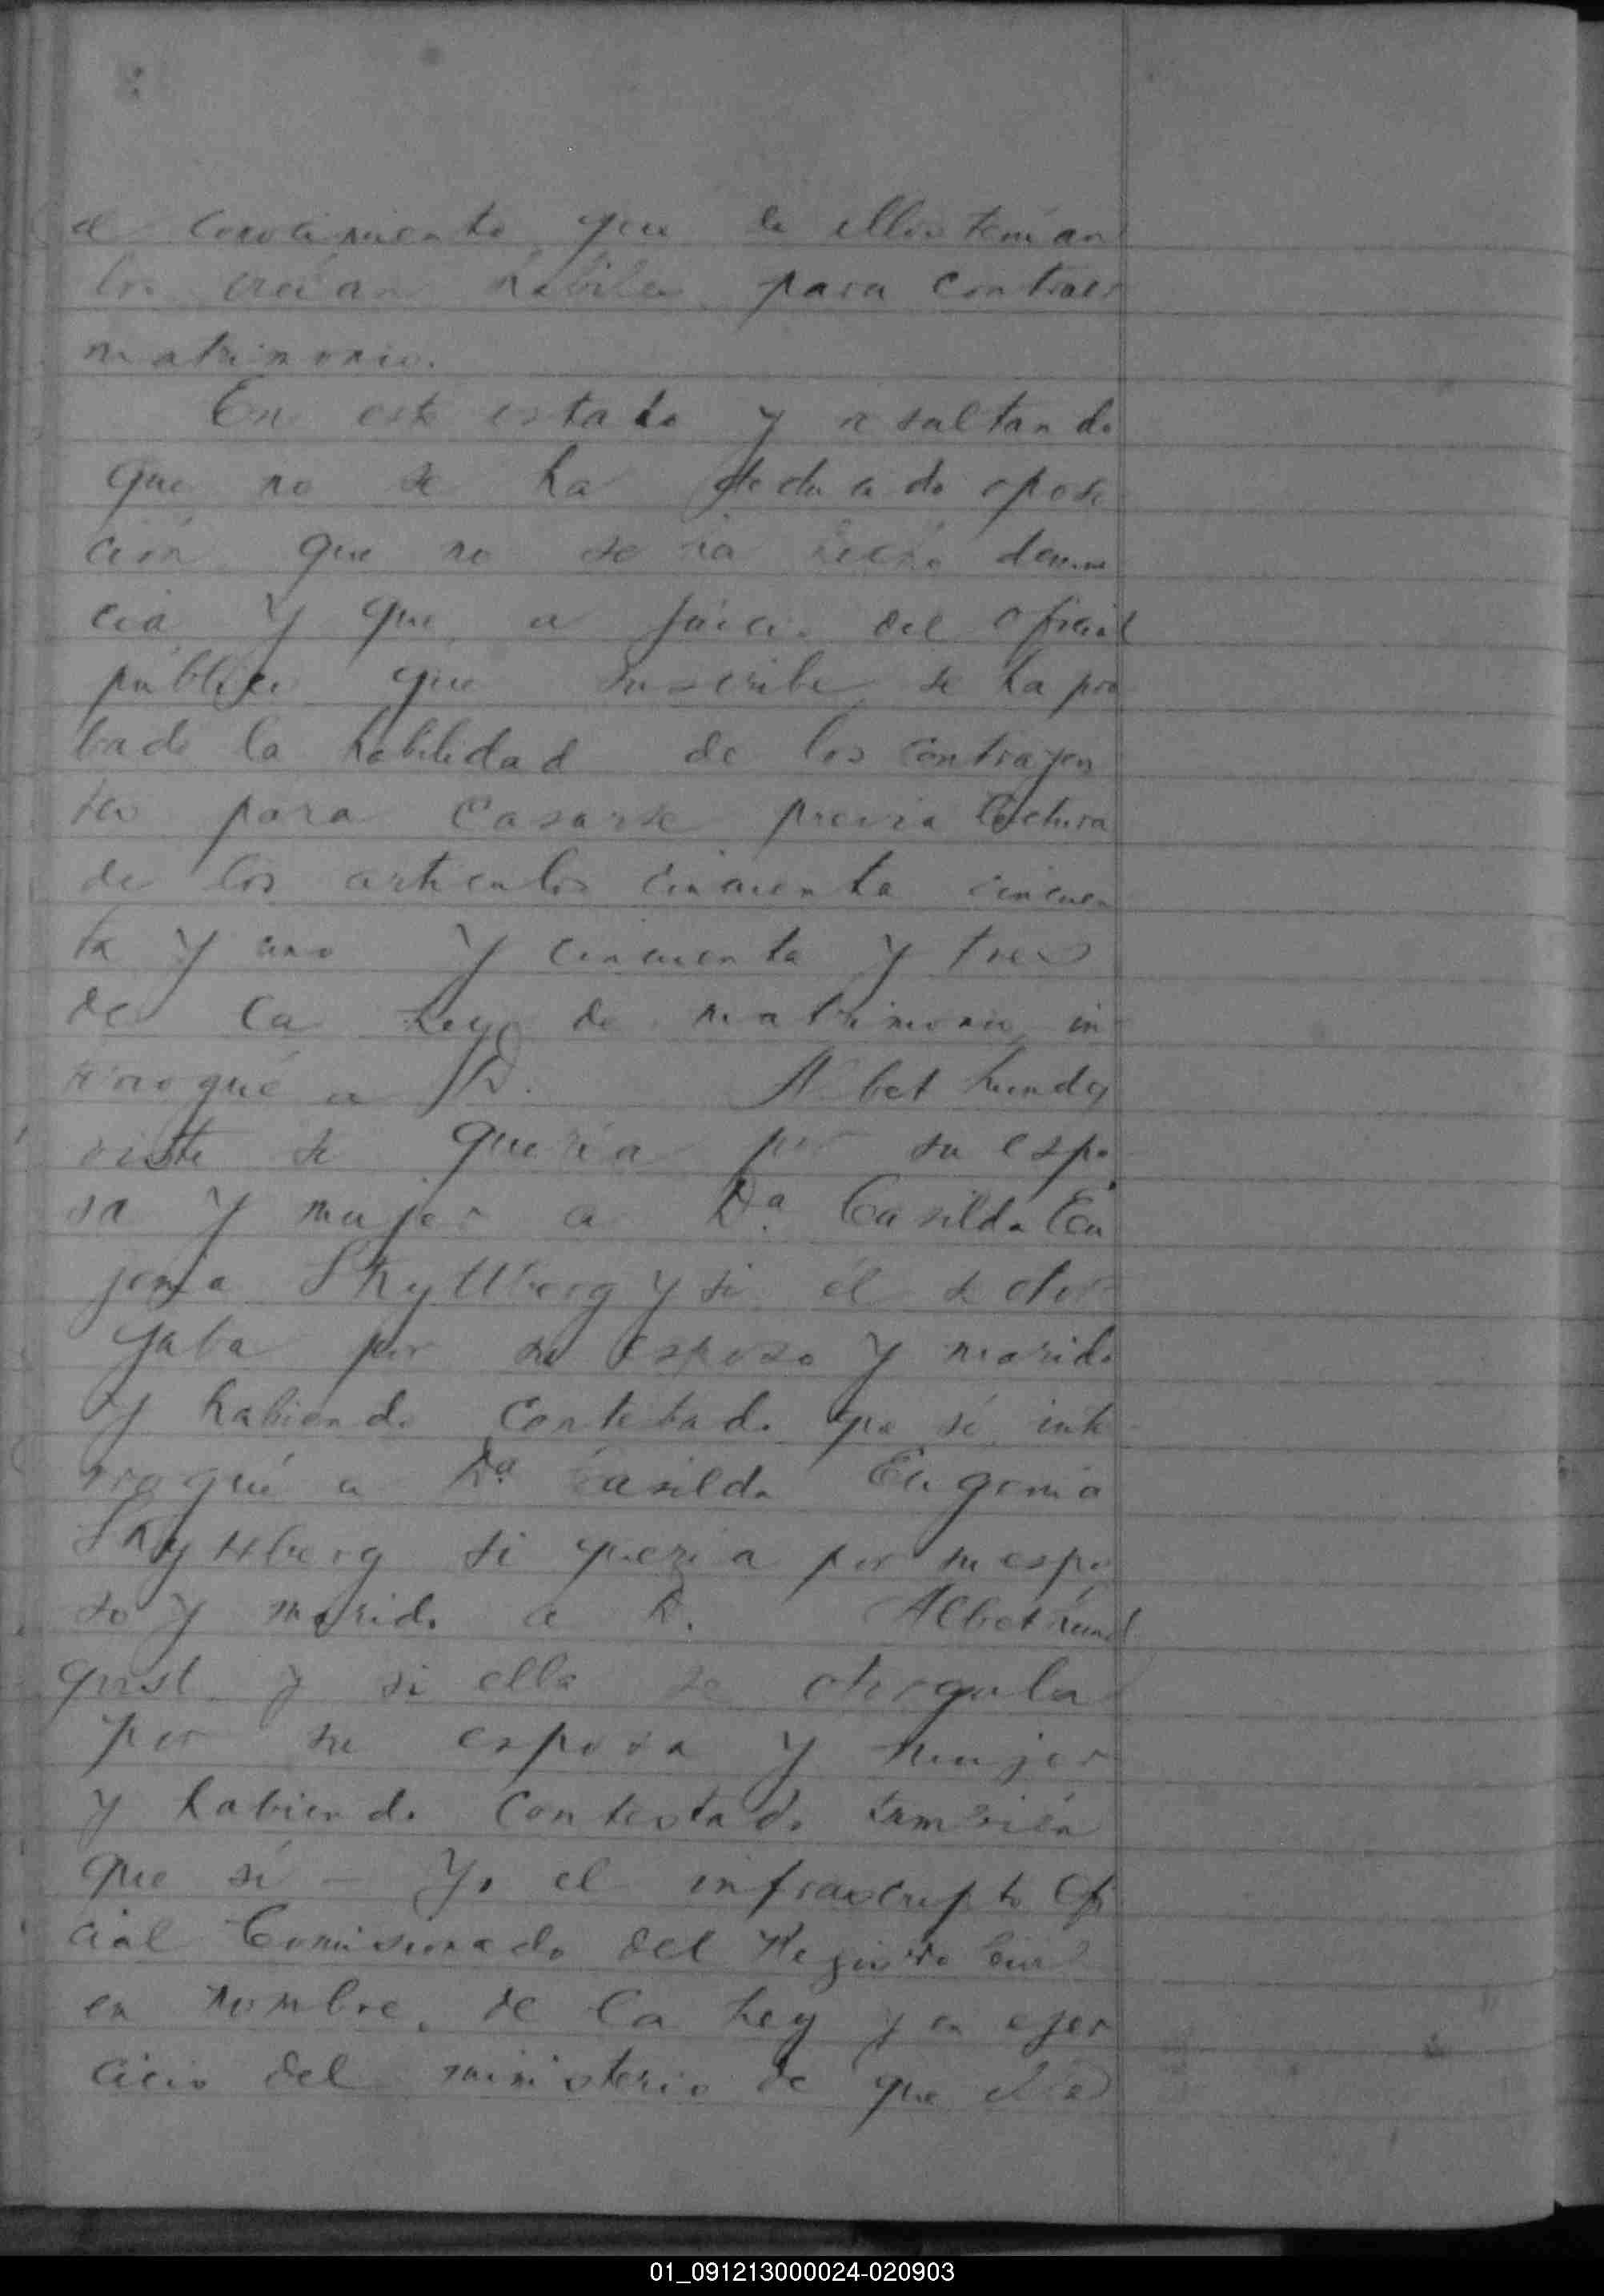 el conocimiento que de ellos tenían
los creían hábiles para contraer
matrimonio.
En este estado y resultando
que no se ha deducido oposi
ción que no se ha hecho denun
cia y que a juicio del oficial
público que suscribe se ha pro
bado la habilidad de los contrayen
tes para casarse previa lectura
de los articulos cincuenta cincuen
ta y uno y cincuenta y tres
de la Ley de matrimonio in
terrogué a D. Albet Lundq
viste si quería por su espo
sa y mujer a Da. Casilda Eu
jenia Skyttberg y si él se otor
gaba por su esposo y marido
y habiendo contestado que sí inte
rrogué a Da Casilda Eugenia
Skyttberg si queria por su espo
so y marido a D. Albet Lund
qvist y si ella se otorgaba
por su esposa y mujer
y habiendo contestado también
que sí - Yo el infrascripto Ofi
cial Comisionado del Registro Civil
en nombre de la Ley y en ejer
cicio del ministerio de que ella